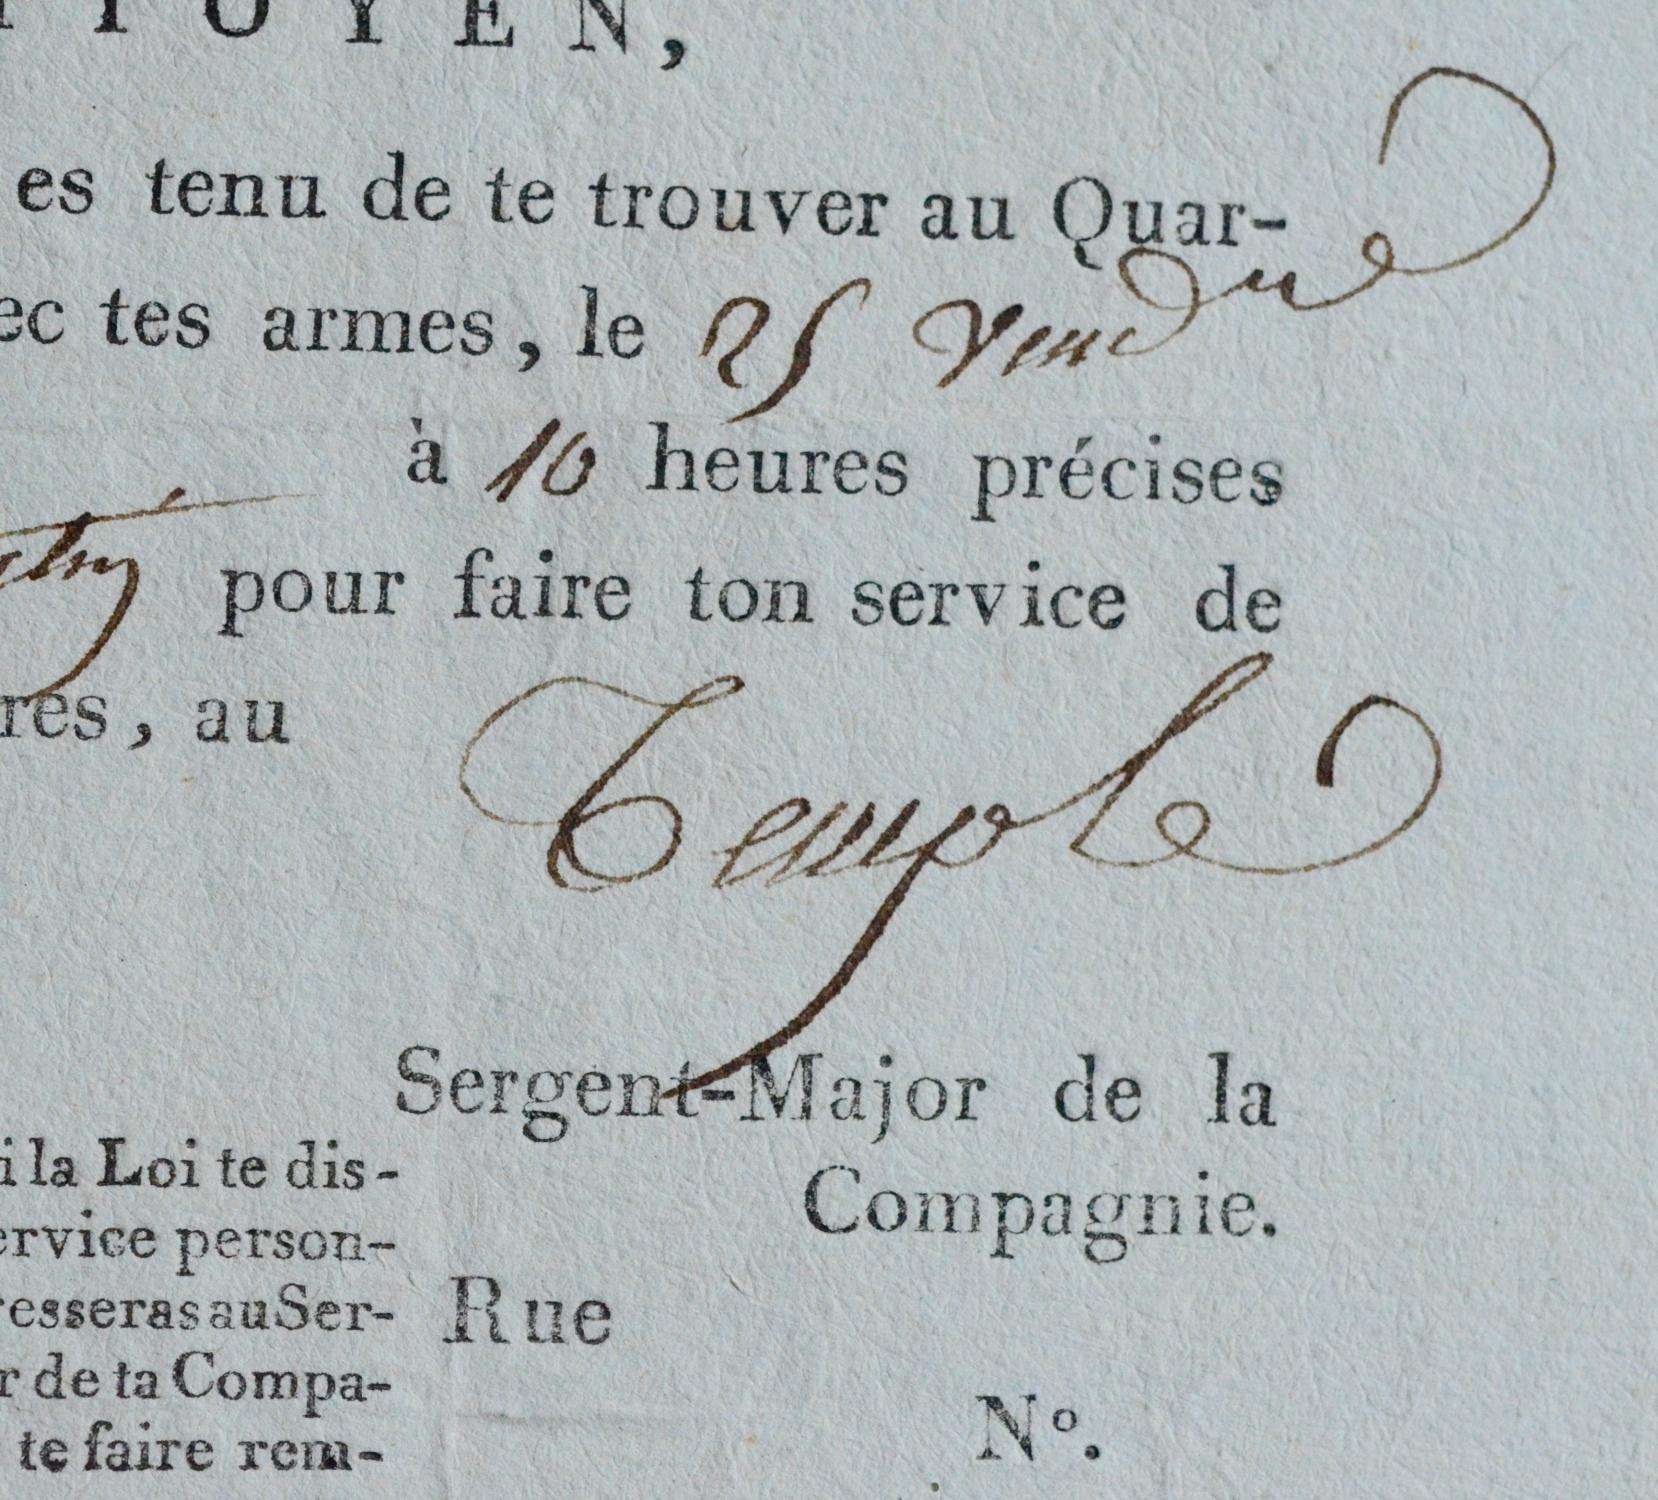 ITOYEN,
es tenu de te trouver au Quar-
ec tes armes, le 25 vend.re
à 10 heures précises
pour faire ton service de
res, au Temple
Sergent-Major de la
Compagnie.
i la Loi te dis-
ervice person-
resseras au Ser-
r de ta Compa-
te faire rem-
Rue
Nº.